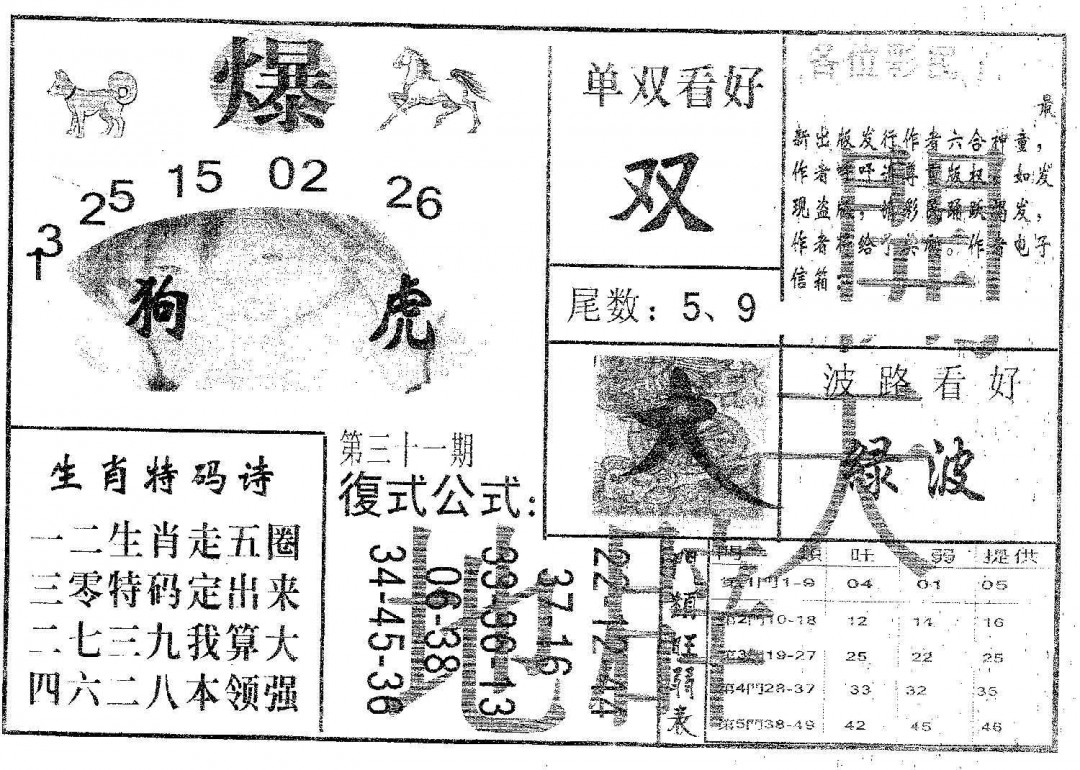 爆
25 15 02 26
13
狗 虎
单双看好
双
尾数：5、9
各位彩民：
最
新出版发行作者六合神童，
作者呼吁请尊重版权，如发
现盗版，请彩民踊跃揭发，
作者将给予奖励。作者电子
信箱：
開
天
闢
地
大
波路看好
绿波
生肖特码诗
一二生肖走五圈
三零特码定出来
二七三九我算大
四六二八本领强
第三十一期
復式公式：
34-45-36
06-38
33-36-13
37-16
22-12-44
門類旺弱表
門類 旺 弱 提供
第1門1-9 04 01 05
第2門10-18 12 14 16
第3門19-27 25 22 25
第4門28-37 33 32 35
第5門38-49 42 45 46